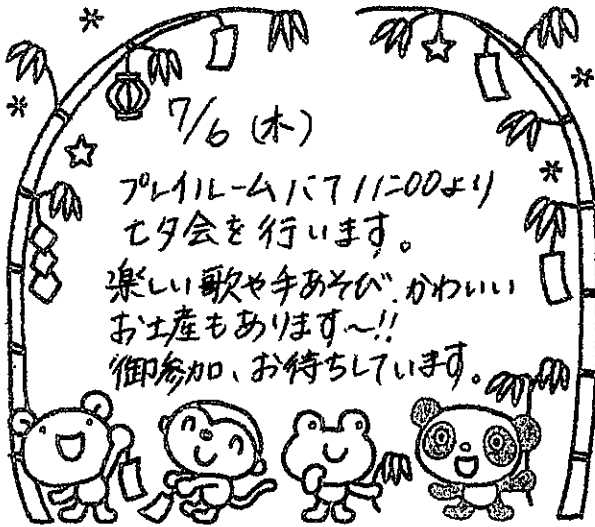 7/6 (木)
プレイルームにて11:00より
七夕会を行います。
楽しい歌や手あそび、かわいい
お土産もあります〜!!
御参加、お待ちしています。